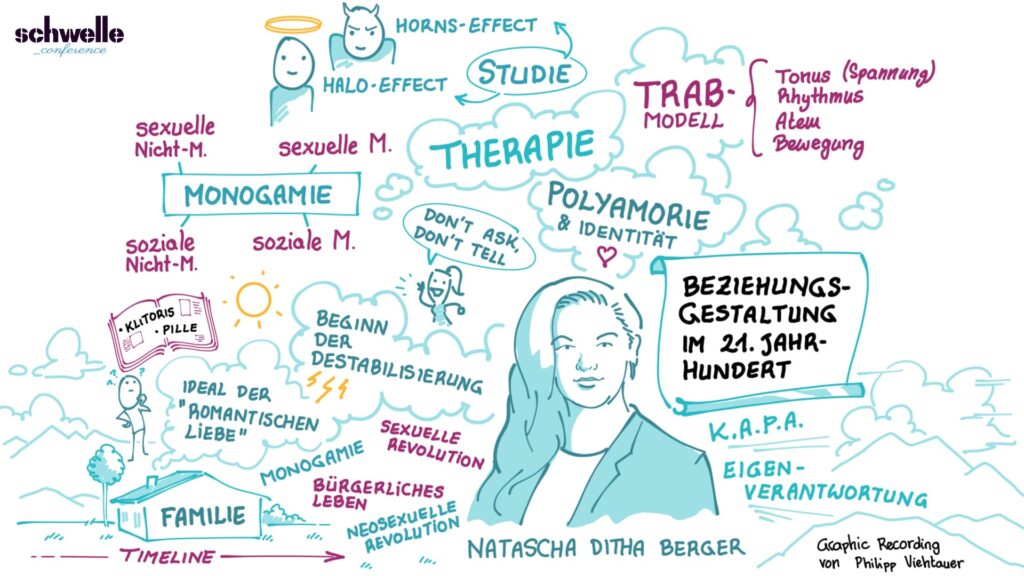 schwelle
_conference
HORNS-EFFECT
HALO-EFFECT
STUDIE
TRAB-
MODELL
Tonus (Spannung)
Rhythmus
Atem
Bewegung
sexuelle
Nicht-M.
sexuelle M.
MONOGAMIE
soziale
Nicht-M.
soziale M.
THERAPIE
POLYAMORIE
& IDENTITÄT
DON'T ASK,
DON'T TELL
BEZIEHUNGS-
GESTALTUNG
IM 21. JAHR-
HUNDERT
• KLITORIS
• PILLE
BEGINN
DER
DESTABILISIERUNG
IDEAL DER
"ROMANTISCHEN
LIEBE"
MONOGAMIE
SEXUELLE
REVOLUTION
BÜRGERLICHES
LEBEN
NEOSEXUELLE
REVOLUTION
FAMILIE
TIMELINE
K.A.P.A.
EIGEN-
VERANTWORTUNG
NATASCHA DITHA BERGER
Graphic Recording
von Philipp Viehtauer